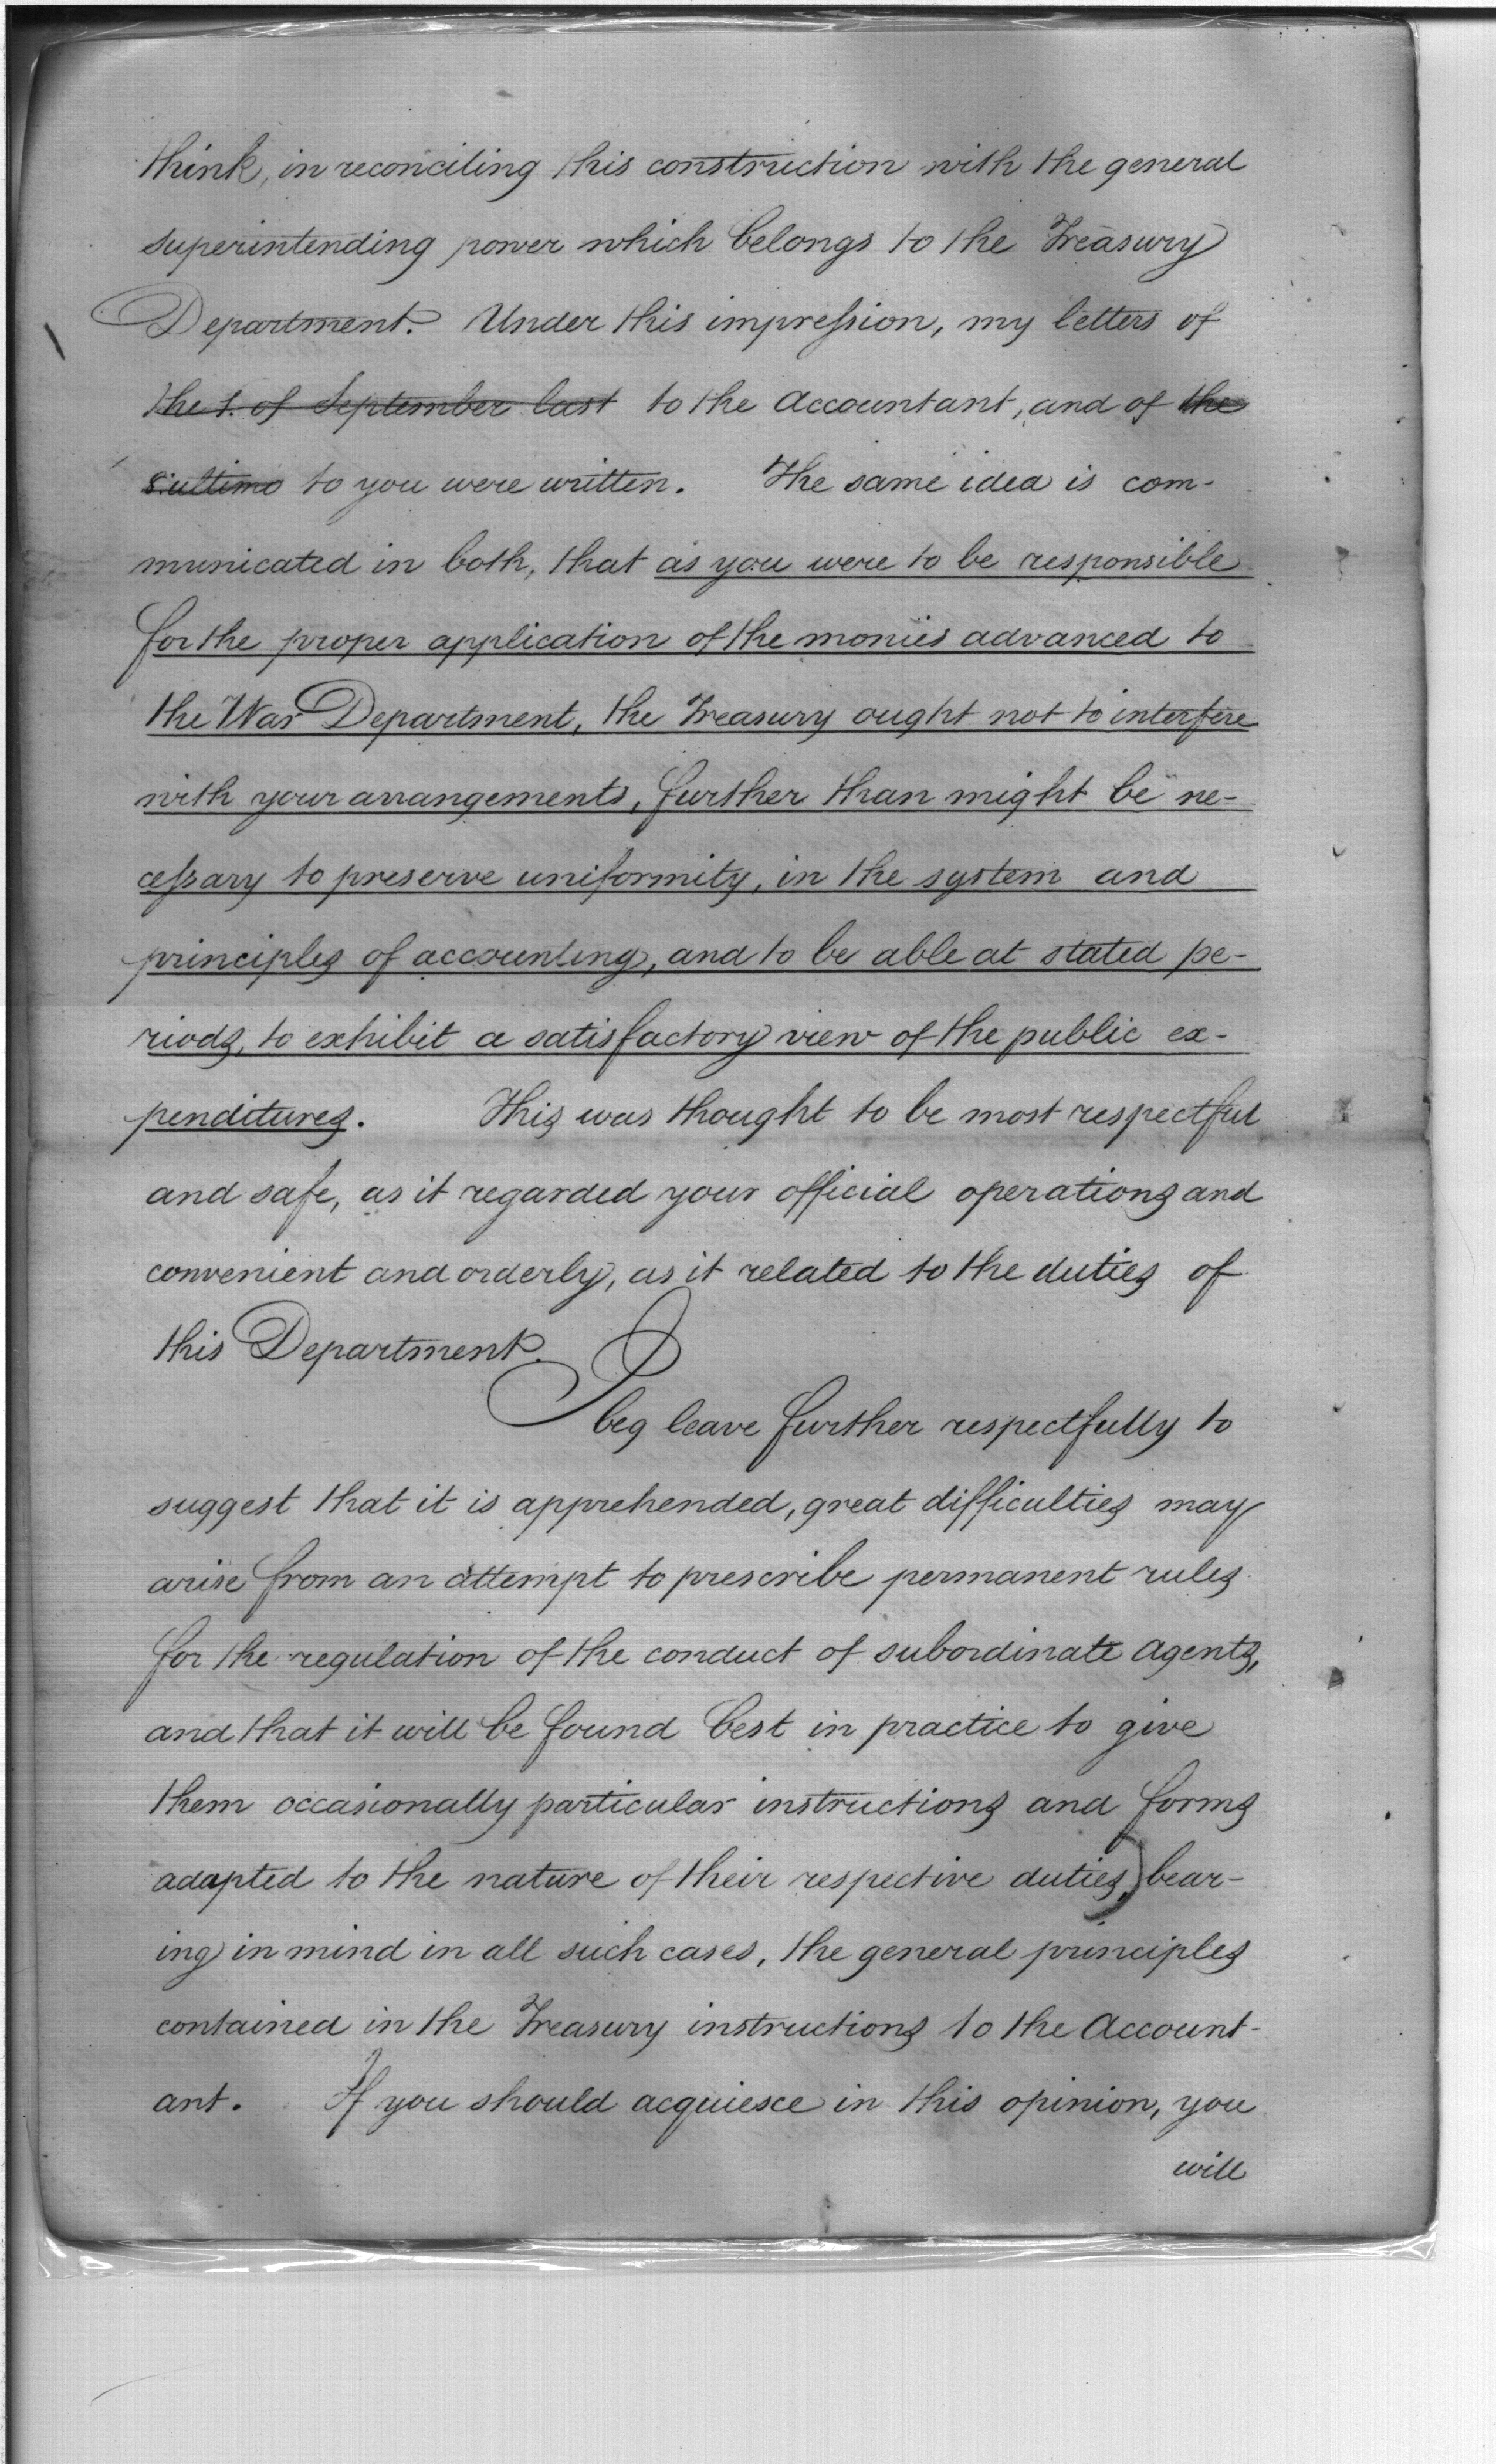 think, in reconciling this construction with the general
superintending power which belongs to the Treasury
Department. Under this impression, my letters of
the 1. of September last to the Accountant, and of the
8. ultimo to you were written. The same idea is com-
municated in both, that as you were to be responsible
for the proper application of the monies advanced to
the War Department, the Treasury ought not to interfere
with your arrangements, further than might be ne-
cessary to preserve uniformity, in the system and
principles of accounting, and to be able at stated pe-
riods, to exhibit a satisfactory view of the public ex-
penditures. This was thought to be most respectful
and safe, as it regarded your official operations and
convenient and orderly, as it related to the duties of
this Department.
I beg leave further respectfully to
suggest that it is apprehended, great difficulties may
arise from an attempt to prescribe permanent rules
for the regulation of the conduct of subordinate agents,
and that it will be found best in practice to give
them occasionally particular instructions and forms
adapted to the nature of their respective duties,) bear-
ing in mind in all such cases, the general principles
contained in the Treasury instructions to the Account-
ant. If you should acquiesce in this opinion, you
will